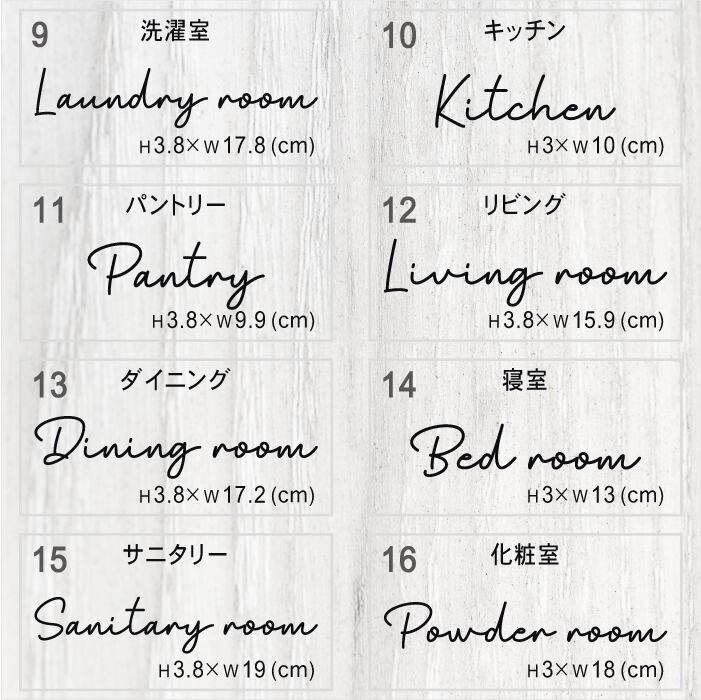 9 洗濯室
Laundry room
H3.8×W17.8(cm)
10 キッチン
Kitchen
H3×W10(cm)
11 パントリー
Pantry
H3.8×W9.9(cm)
12 リビング
Living room
H3.8×W15.9(cm)
13 ダイニング
Dining room
H3.8×W17.2(cm)
14 寝室
Bed room
H3×W13(cm)
15 サニタリー
Sanitary room
H3.8×W19(cm)
16 化粧室
Powder room
H3×W18(cm)